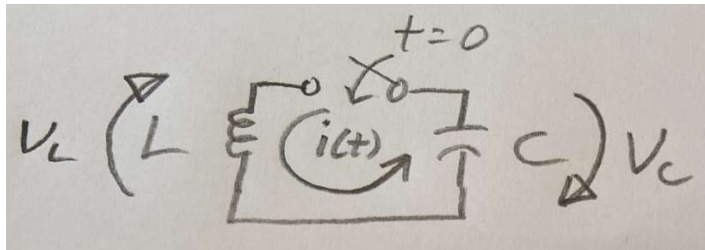 t=0
V_L L i(t) C V_C